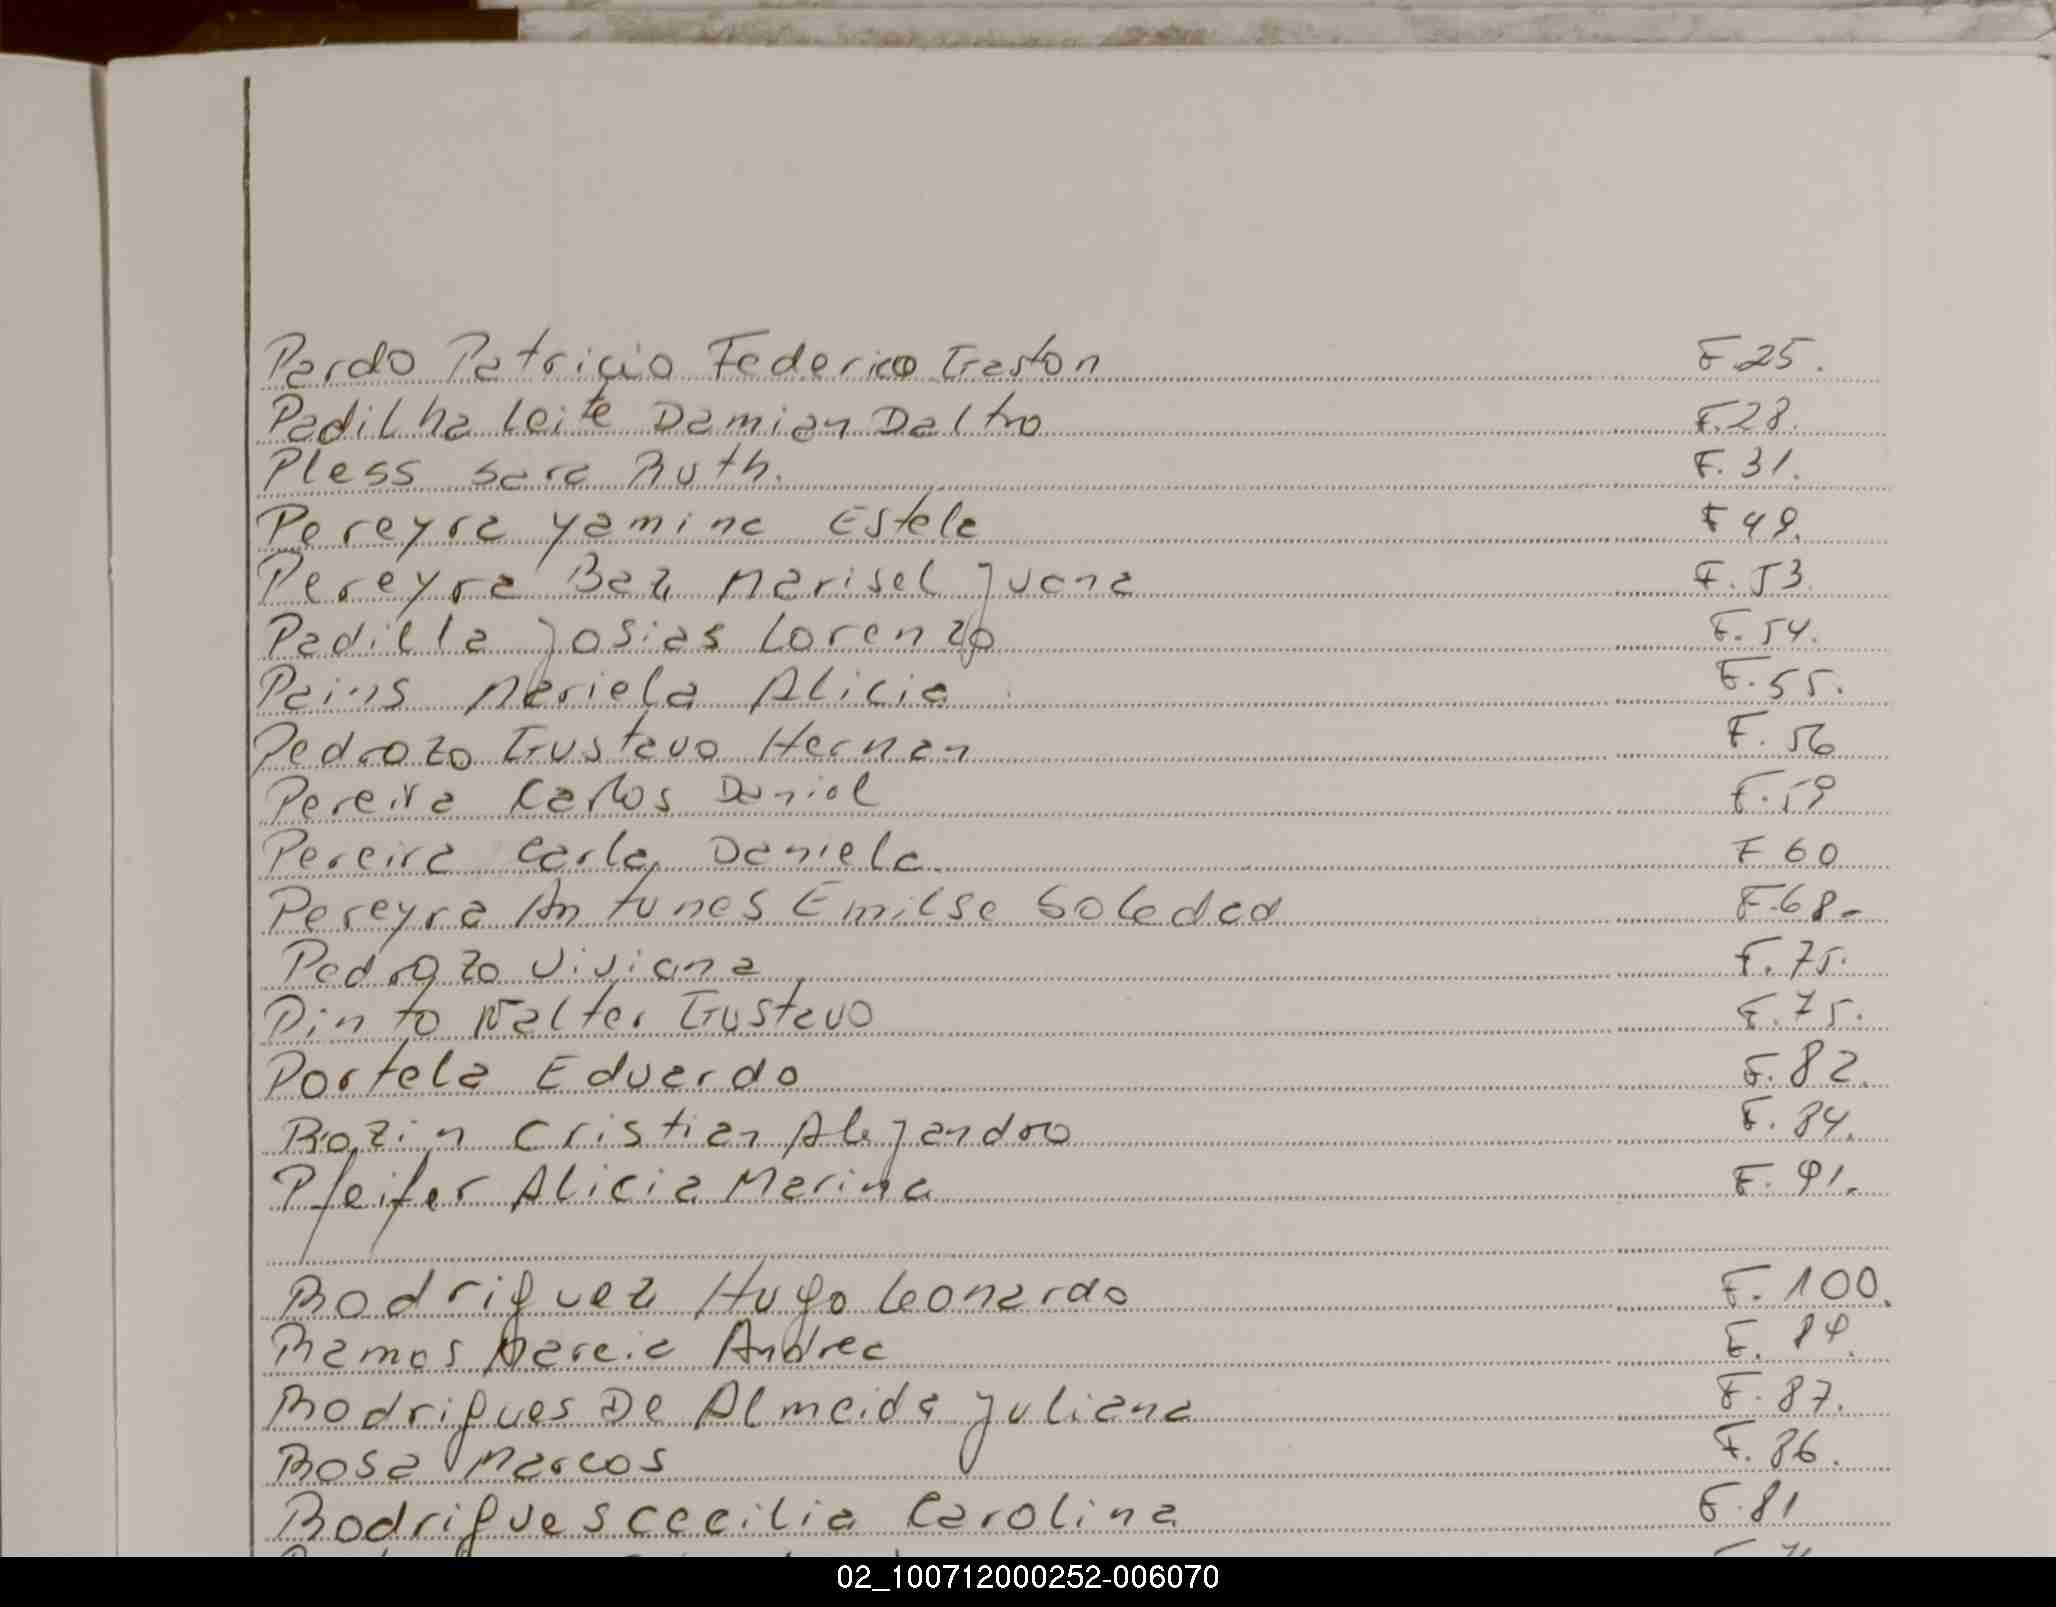 Pardo Patricio Federico Gaston F.25.
Padilha Leite Damian Daltro F.28.
Pless Sara Ruth. F. 31.
Pereyra Yamina Estela F 49.
Pereyra Baz Marisel Juana F. 53
Padilla Josias Lorenzo F. 54.
Pains Mariela Alicia F. 55.
Pedrozo Gustavo Hernan F. 56
Pereira Carlos Daniel F. 59
Pereira Carla Daniela F 60
Pereyra Antunes Emilse Soledad F.68-
Pedrozo Viviana F. 75.
Pinto Walter Gustavo F. 75.
Portela Eduardo F. 82.
Cristian Alejandro F. 84.
Pfeifer Alicia Marina F. 91.
Rodriguez Hugo Leonardo F. 100.
Ramos Marcia Andrea F.
Rodrigues De Almeida Juliana F. 87.
Rosa Marcos F. 86.
Rodrigues Cecilia Carolina F. 81
02_100712000252-006070